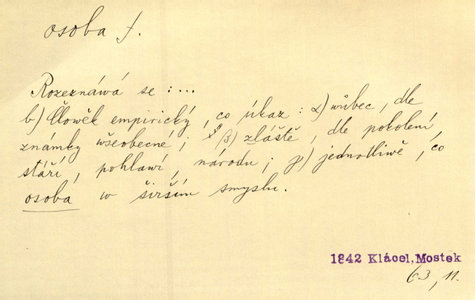 osoba f.
Rozeznáwá se : ...
b) Člowěk empirický, co úkaz : α) wůbec, dle
známky wšeobecné ; β) zláště, dle pokolení,
stáří, pohlawí, národu ; γ) jednotliwě, co
osoba w širším smyslu.
1842 Klácel, Mostek
63, 11.